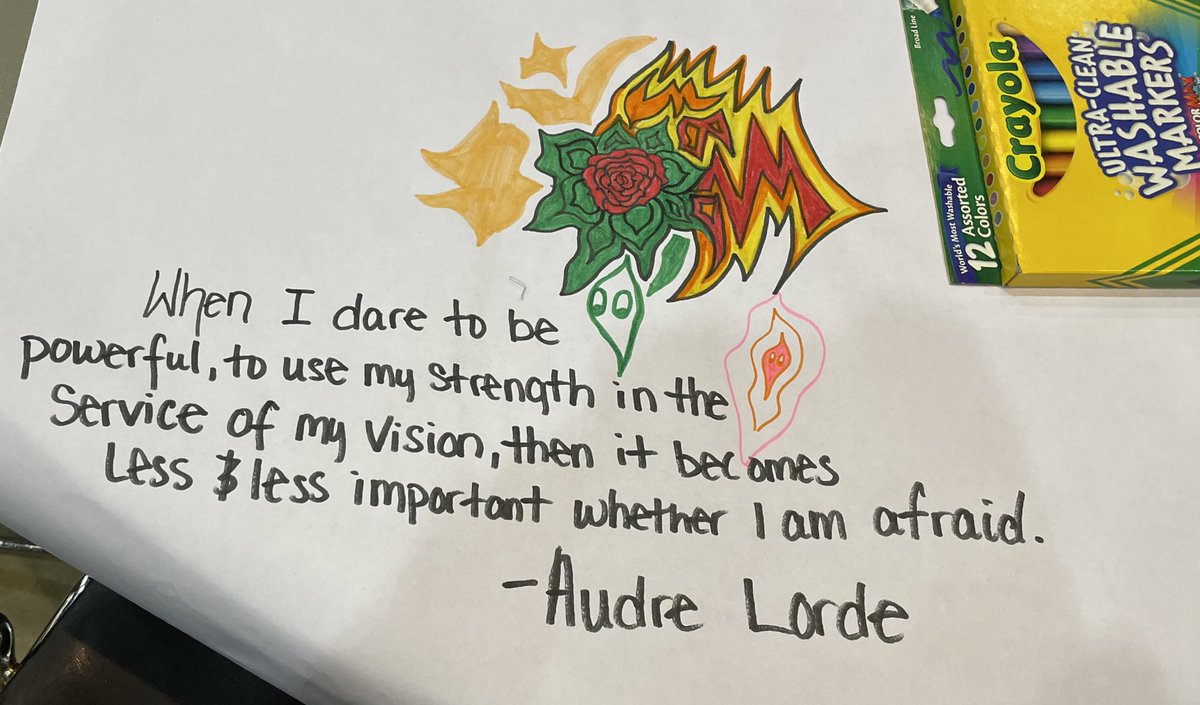 When I dare to be
powerful, to use my strength in the
Service of my vision, then it becomes
Less $ less important whether I am afraid.
-Audre Lorde
Broad Line
Crayola
ULTRA-CLEAN
WASHABLE
MARKERS
World's Most Washable
12 Assorted
Colors